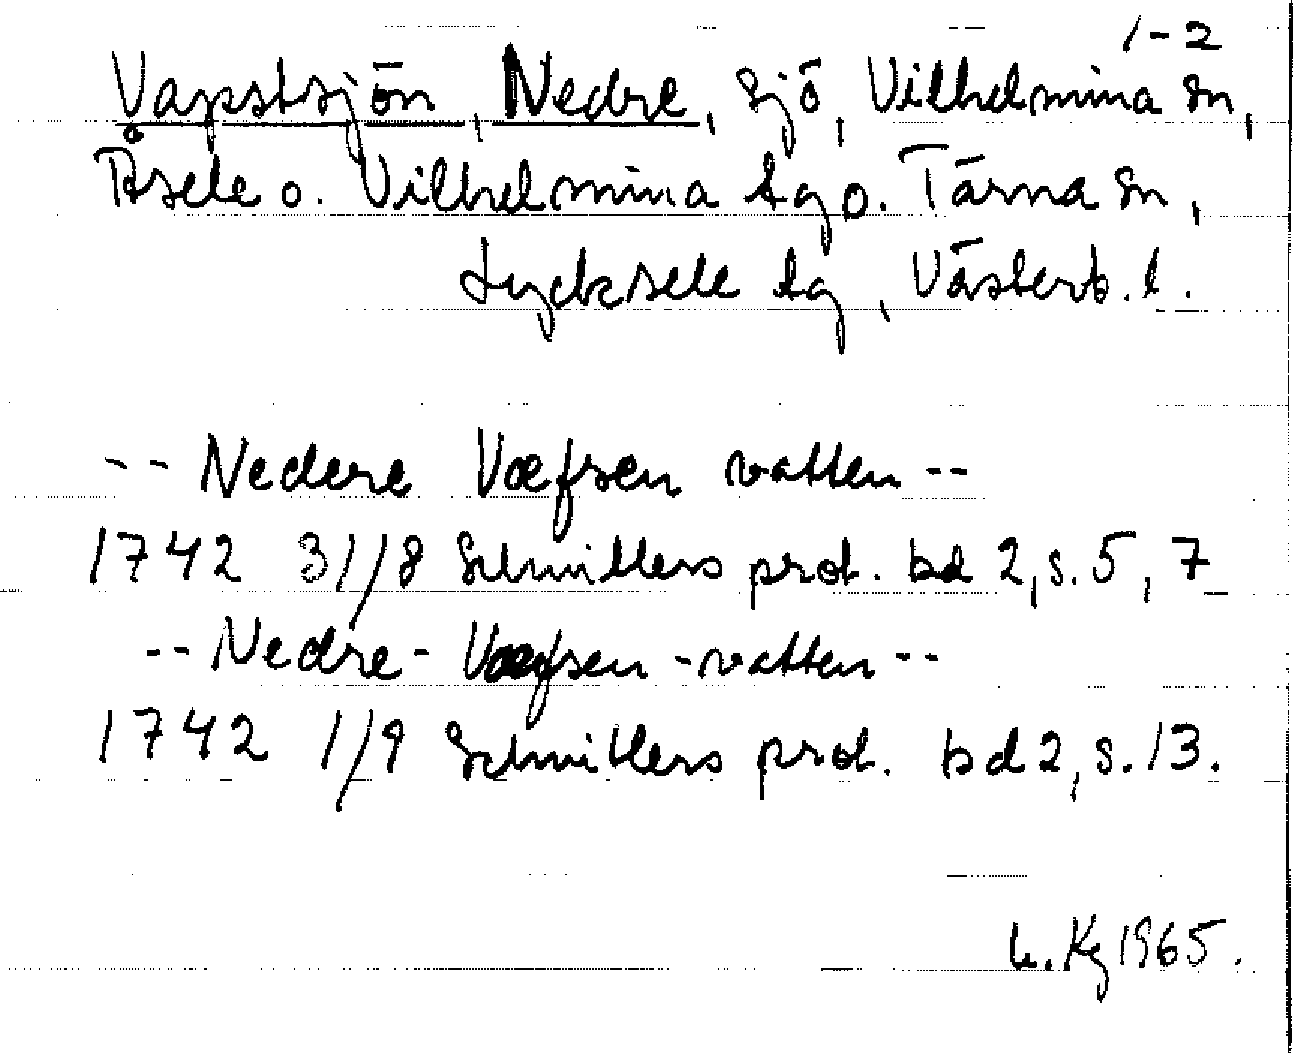 1-2
Vapstsjön, Nedre, sjö, Vilhelmina sn,
Åsele o. Vilhelmina tg o. Tärna sn,
Lycksele tg, Västerb. l.
-- Nedere Væfsen vatten --
1742 31/8 Schnitlers prot. bd 2, s. 5, 7
-- Nedre - Væfsen - vatten --
1742 1/9 Schnitlers prot. bd 2, s. 13.
Kg 1965.